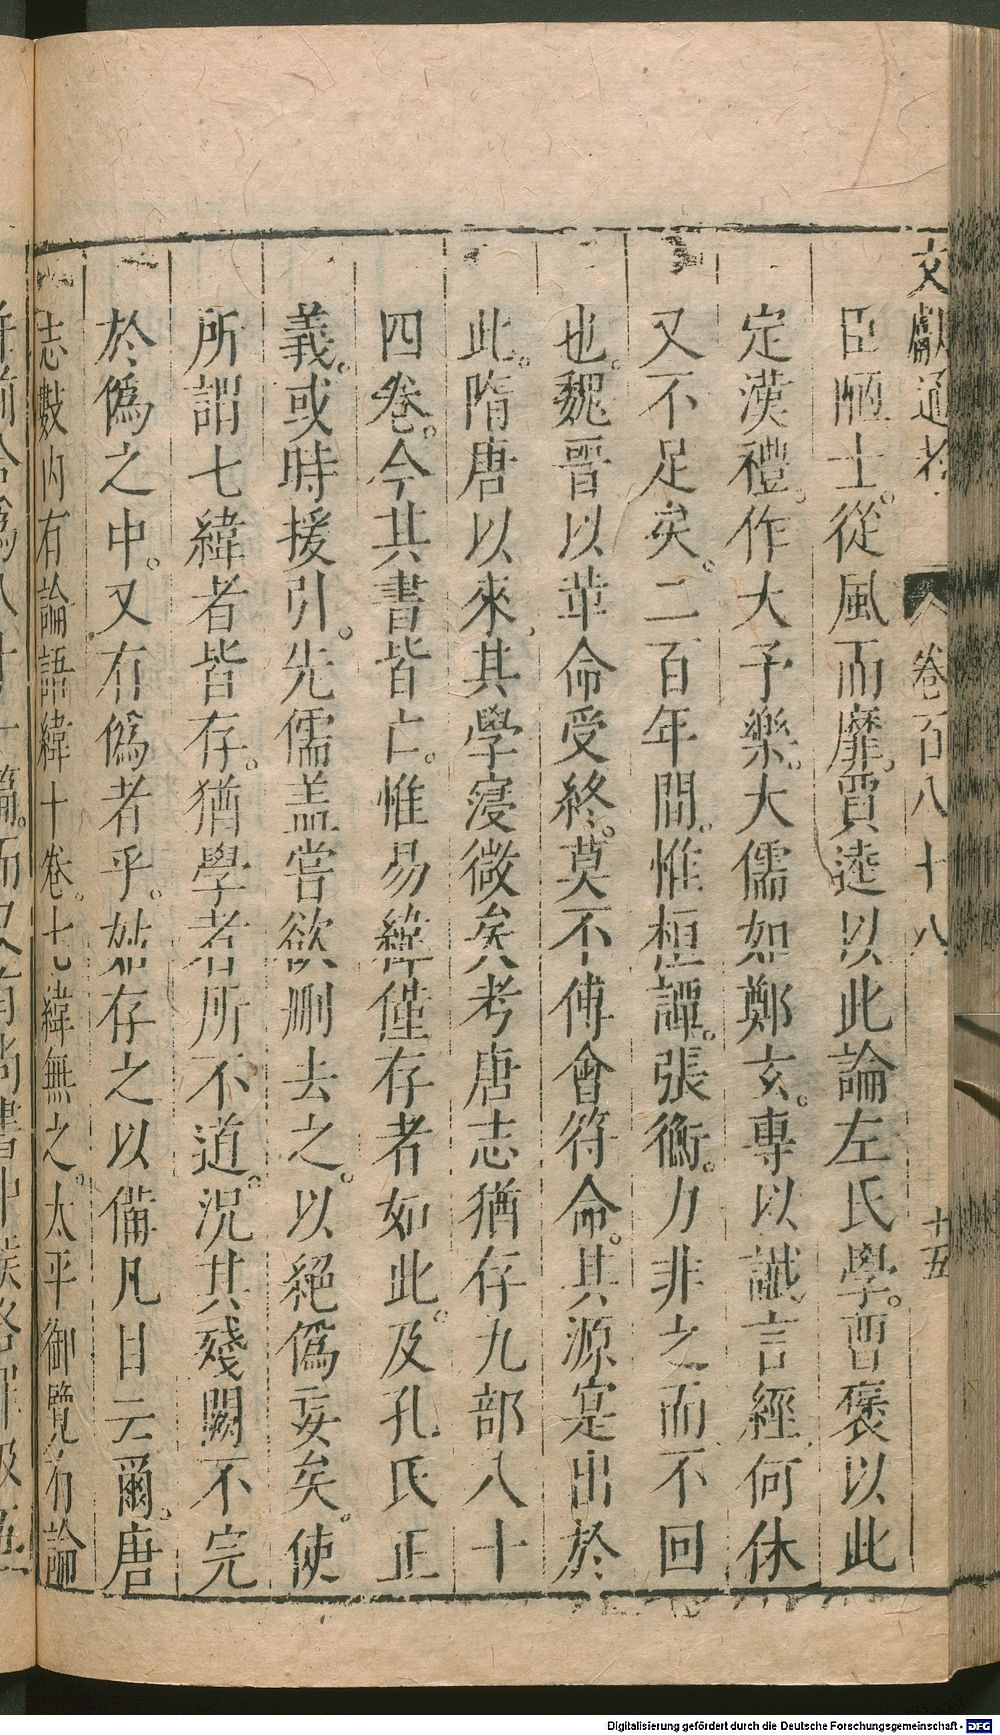 文獻通考 卷百八十八 十五
臣陋士。從風而靡。賈逵以此論左氏學。曹褒以此
定漢禮。作大予樂。大儒如鄭玄。專以讖言經。何休
又不足矣。二百年間。惟桓譚。張衡。力非之而不回
也。魏晉以革命受終。莫不傅會符命。其源寔出於
此。隋唐以來。其學寖微矣考唐志猶存九部八十
四卷。今其書皆亡。惟易緯僅存者如此。及孔氏正
義。或時援引。先儒盖嘗欲删去之。以絕偽妄矣。使
所謂七緯者皆存。猶學者所不道。況其殘闕不完
於偽之中。又有偽者乎。姑存之以備凡目云爾。唐
志數內有論語緯十卷。七緯無之。太平御覽有論
Digitalisierung gefördert durch die Deutsche Forschungsgemeinschaft - DFG